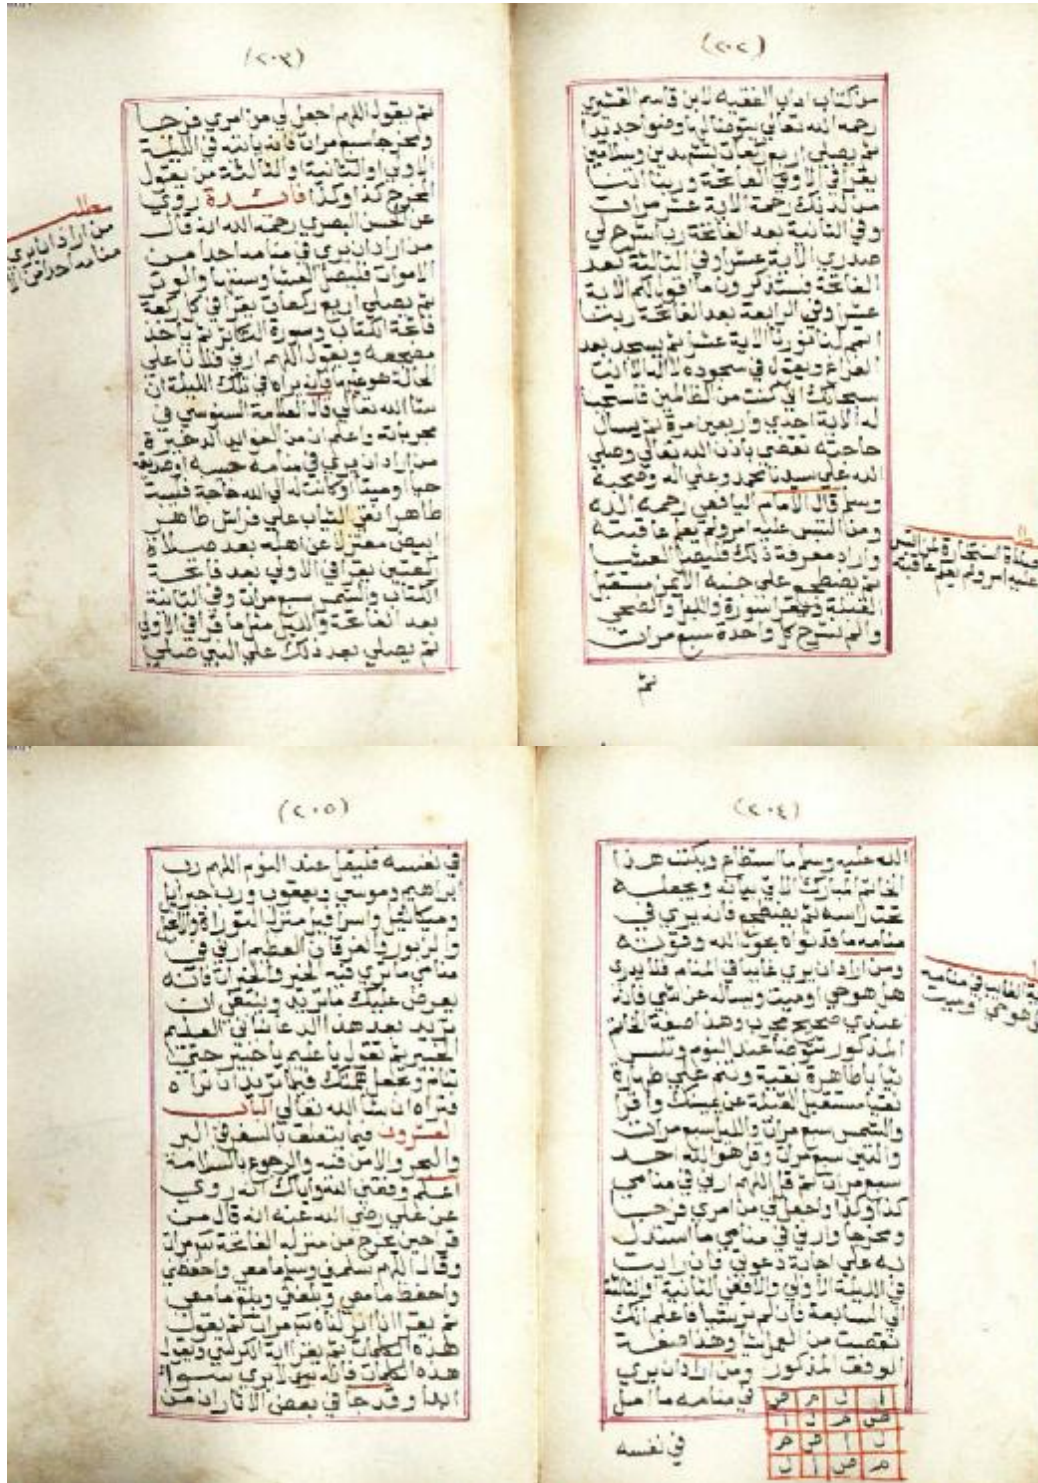 (٢٠٢)
من كتاب اداب الفقيه لابن قاسم القشيري
رحمه الله تعالى يتوضا وضوا جديدا
ثم يصلي اربع ركعات بتشهدين وسلامين
يقرا في الاولى الفاتحة وربنا اتنا
من لدنك رحمة الاية عشر مرات
وفي الثانية بعد الفاتحة رب اشرح لي
صدري الاية عشرا وفي الثالثة بعد
الفاتحة فستذكرون ما اقول لكم الاية
عشرا وفي الرابعة بعد الفاتحة ربنا
اتمم لنا نورنا الاية عشرا ثم يسجد بعد
الفراغ ويقول في سجوده لا اله الا انت
سبحانك اني كنت من الظالمين فاستجبنا
له الاية احدي واربعين مرة ثم يسال
حاجته تقضي باذن الله تعالي وصلي
الله علي سيدنا محمد وعلي اله وصحبه
وسلم قال الامام اليافعي رحمه الله
ومن التبس عليه امر ولم يعلم عاقبته
واراد معرفة ذلك فليصل العشا
ثم يضطجع علي جنبه الايمن مستقبل
القبلة ويقرا سورة والليل والضحي
والم نشرح كل واحدة سبع مرات
ثم
استخارة لمن التبس
عليه امر ولم يعلم عاقبته
(٢٠٣)
ثم يقول اللهم اجعل لي من امري فرجا
ومخرجا سبع مرات فانه ياتيه في الليلة
الاولي او الثانية او الثالثة من يقول
المخرج كذا وكذا فائدة روي
عن الحسن البصري رحمه الله انه قال
من اراد ان يري في منامه احدا من
الاموات فليصل العشا وسنتها والوتر
ثم يصلي اربع ركعات يقرا في كل ركعة
فاتحة الكتاب وسورة التكاثر ثم ياخذ
مضجعه ويقول اللهم ارني فلانا علي
الحالة هو عليها فانه يراه في تلك الليلة ان
شا الله تعالي قال العلامة السنوسي في
مجرباته واعلم ان من الفوايد الذخيرة
من اراد ان يري في منامه
حيا او ميتا او كانت له الي الله حاجة فليبت
طاهرا نقي الثياب علي فراش طاهر
ابيض معتزلا عن اهله بعد صلاة
ركعتين يقرا في الاولي بعد فاتحة
الكتاب والشمس سبع مرات وفي الثانية
بعد الفاتحة والليل مثل ما قرا في الاولي
ثم يصلي بعد ذلك علي النبي صلي
مطلب
من اراد ان يري
منامه احدا من
(٢٠٤)
الله عليه وسلم ما استطاع ويكتب هذا
الخاتم المبارك الاتي بيانه ويجعله
تحت راسه ثم يضطجع فانه يري في
منامه ما قد نواه بحول الله وقوته
ومن اراد ان يري غايبا في المنام فلا يدري
هل هو حي او ميت ويساله عن شي فانه
عندي صحيح مجرب وهذا صفة الخاتم
المذكور تتوضا عند النوم وتلبس
ثيابا طاهرة نقية وتنم علي طهارة
نقيا مستقبل القبلة عن يمينك واقرا
والشمس سبع مرات والليل سبع مرات
والتين سبع مرات وقل هو الله احد
سبع مرات ثم قل اللهم ارني في منامي
كذا وكذا واجعل لي من امري فرجا
ومخرجا وارني في منامي ما استدل
به علي اجابة دعوتي فان رايت
في الليلة الاولي والا ففي الثانية والثالثة
الي السابعة فان لم تر شيا فاعلم انك
نقصت من العمل شيا وهذا صفة
الوفق المذكور ومن اراد ان يري
في منامه ما امل
ا ل م ص
ص م ل ا
ل ا ص م
م ص ا ل
في نفسه
الغايب في منامه
هو حي او ميت
(٢٠٥)
في نفسه فليقل عند النوم اللهم رب
ابراهيم وموسي ويعقوب ورب جبرايل
وميكائيل واسرافيل منزل التوراة والانجيل
والزبور والفرقان العظيم ارني في
منامي ما تري فيه الخير والخيرات فانه
يعرض عليك ما تريد وينبغي ان
تزيد بعد هذا الدعا نباني العليم
الخبير ثم تقول يا عليم يا خبير حتي
تنام وتجعل همتك فيما تريد ان تراه
فتراه ان شا الله تعالي الباب
العشرون فيما يتعلق بالسفر في البر
والبحر والامن فيه والرجوع بالسلامة
اعلم وفقني الله واياك انه روي
عن علي رضي الله عنه انه قال من
قرا حين يخرج من منزله الفاتحة مرات
وقال اللهم سلمني وسلم ما معي واحفظني
واحفظ ما معي وبلغني وبلغ ما معي
ثم يقرا انا انزلناه مرات ثم يقول
هذه الكلمات ثم يقرا اية الكرسي ويقول
هذه الكلمات فانه لا يري سوا
ابدا وقد جا في بعض الاثار ان من